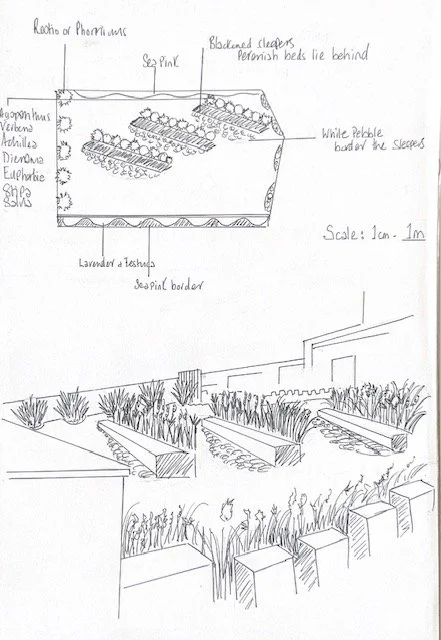 Restio or Phormiums
Blackened sleepers
Perenish beds lie behind
Sea Pink
Agapanthus
Verbena
Achillea
Dierama
Euphorbia
Stipa
White Pebble
border the sleepers
Scale: 1cm - 1m
Lavender + Festuca
Sea pink border